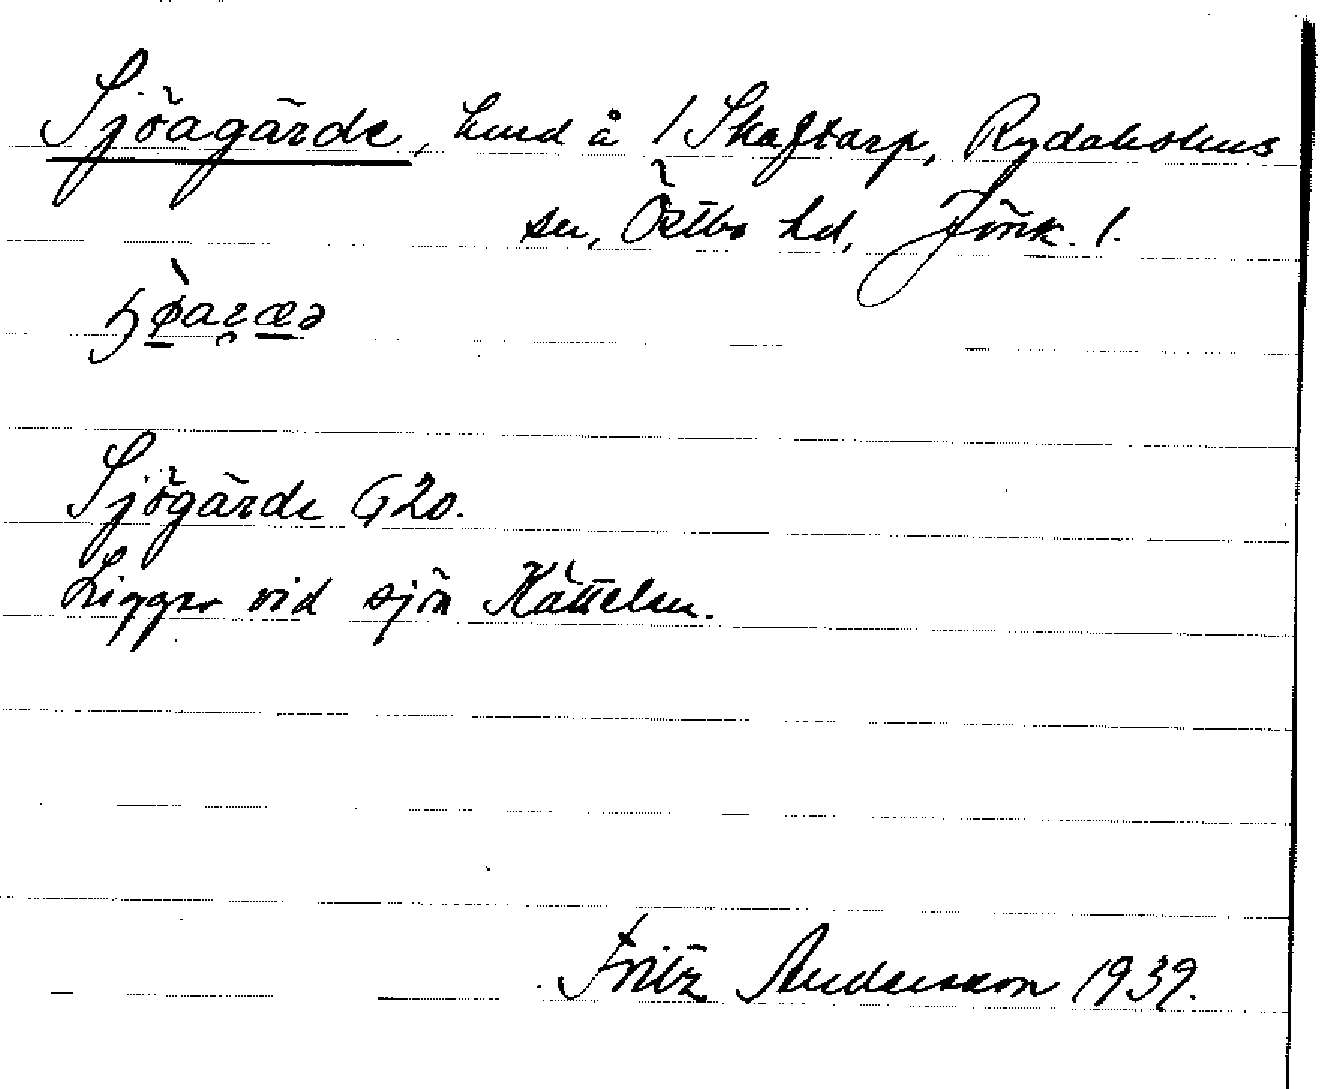 Sjöagärde, lund å 1 Skaftarp, Rydaholms
sn, Östbo hd, Jönk. l.
Sjögärde G20.
Ligger vid sjön Hättelen.
Fritz Andersson 1939.